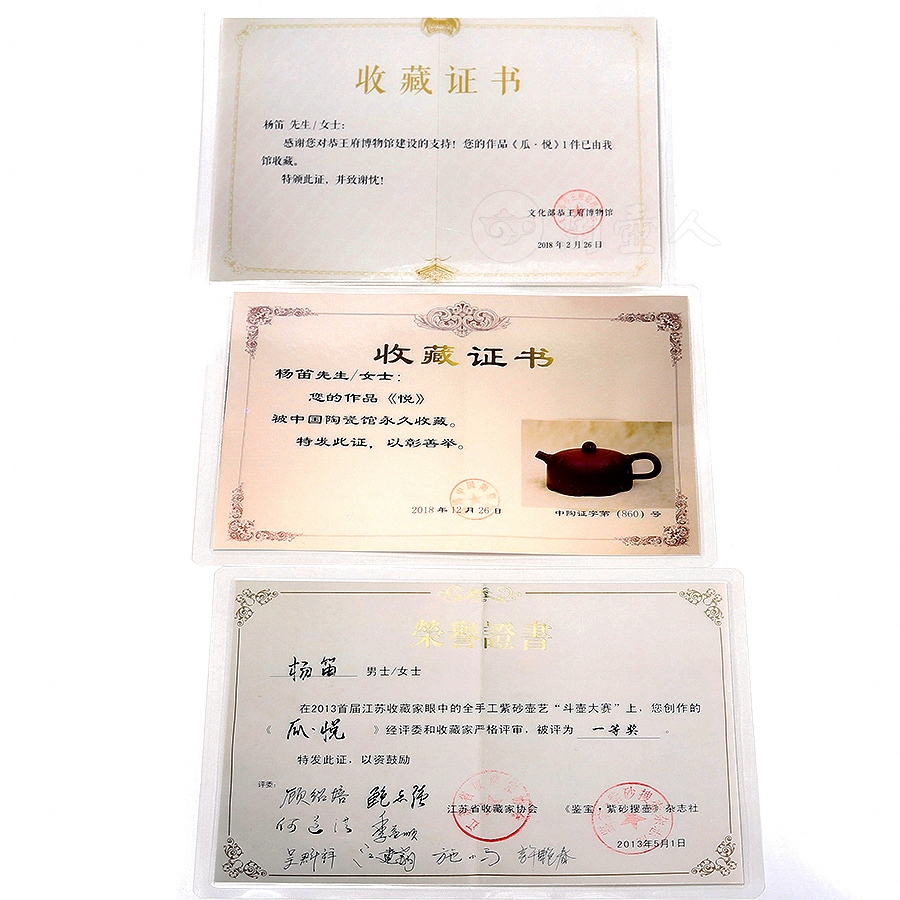 收藏证书
杨笛 先生/女士：
感谢您对恭王府博物馆建设的支持！您的作品《瓜·悦》1件已由我
馆收藏。
特颁此证，并致谢忱！
文化部恭王府博物馆
2018年2月26日
壶人
收藏证书
杨笛先生/女士：
您的作品《悦》
被中国陶瓷馆永久收藏。
特发此证，以彰善举。
2018年12月26日
中陶证字第（860）号
榮譽證書
杨笛 男士/女士
在2013首届江苏收藏家眼中的全手工紫砂壶艺“斗壶大赛”上，您创作的
《 瓜·悦 》经评委和收藏家严格评审，被评为 一等奖 。
特发此证，以资鼓励
评委：
顾绍培 鲍志强
江苏省收藏家协会 《鉴宝·紫砂搜壶》杂志社
季益顺
2013年5月1日
吴群祥 江建翔 施小马 许艳春